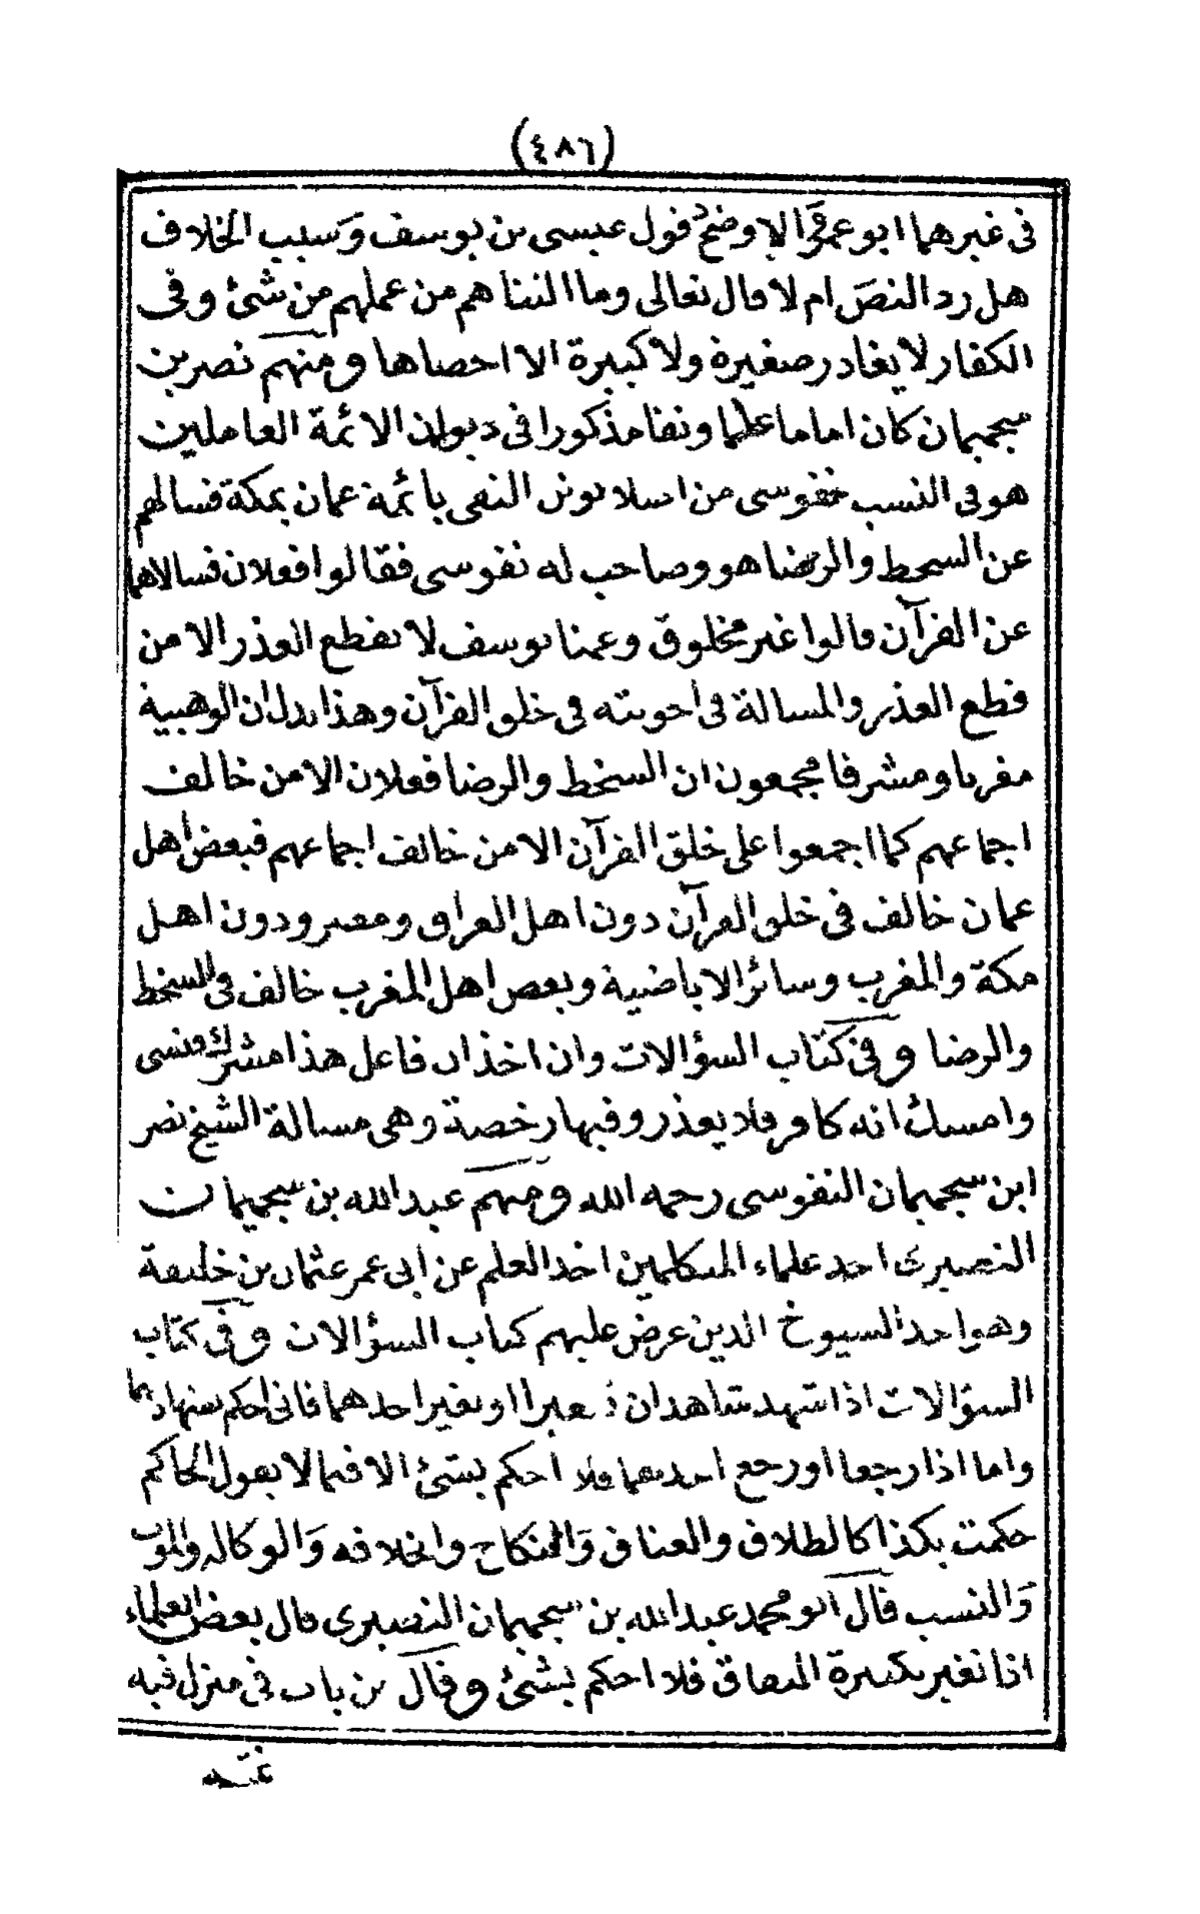 (٤٨٦)
فى غيرهما ابو عمرو الاوضح قول عيسى بن يوسف وسبب الخلاف
هل رد النص ام لا قال تعالى وما التناهم من عملهم من شئ وفى
الكفار لا يغادر صغيرة ولا كبيرة الا احصاها ومنهم نصر بن
سجميمان كان اماما عالما ونقا مذكورا فى ديوان الائمة العاملين
هو فى النسب نفوسى من التقى بائمة عمان بمكة فسالهم
عن السخط والرضا هو وصاحب له نفوسى فقالوا فعلان فسالاهما
عن القرآن قالوا غير مخلوق وعمنا يوسف لا يقطع العذر الا من
قطع العذر والمسالة فى اجوبته فى خلق القرآن وهذا يدل ان الوهبية
مغربا ومشرقا مجمعون ان السخط والرضا فعلان الا من خالف
اجماعهم كما اجمعوا على خلق القرآن الا من خالف اجماعهم فبعض اهل
عمان خالف فى خلق القرآن دون اهل العراق ومصر ودون اهل
مكة والمغرب وسائر الاباضية وبعض اهل المغرب خالف فى السخط
والرضا وفى كتاب السؤالات وان اخذ ان فاعل هذا مشرك ونسى
وامسك انه كافر فلا يعذر وفيها رخصة وهى مسالة الشيخ نصر
ابن سجميمان النفوسى رحمه الله ومنهم عبد الله بن سجميمان
النصيرى احد علماء المتكلمين اخذ العلم عن ابى عمر عثمان بن خليفة
وهو احد الشيوخ الذين عرض عليهم كتاب السؤالات وفى كتاب
السؤالات اذا شهد شاهدان تغيرا او تغير احدهما فانى احكم بشهادتهما
واما اذا رجعا او رجع احدهما فلا احكم بشئ الا فيما لا يقول الحاكم
حكمت بكذا كالطلاق والعتاق والنكاح والخلافه والوكاله والموت
والنسب قال ابو محمد عبد الله بن سجميمان النصيرى قال بعض العلماء
اذا تغير بكبيرة النفاق فلا احكم بشئ وقال بن باب فى منزل فيه